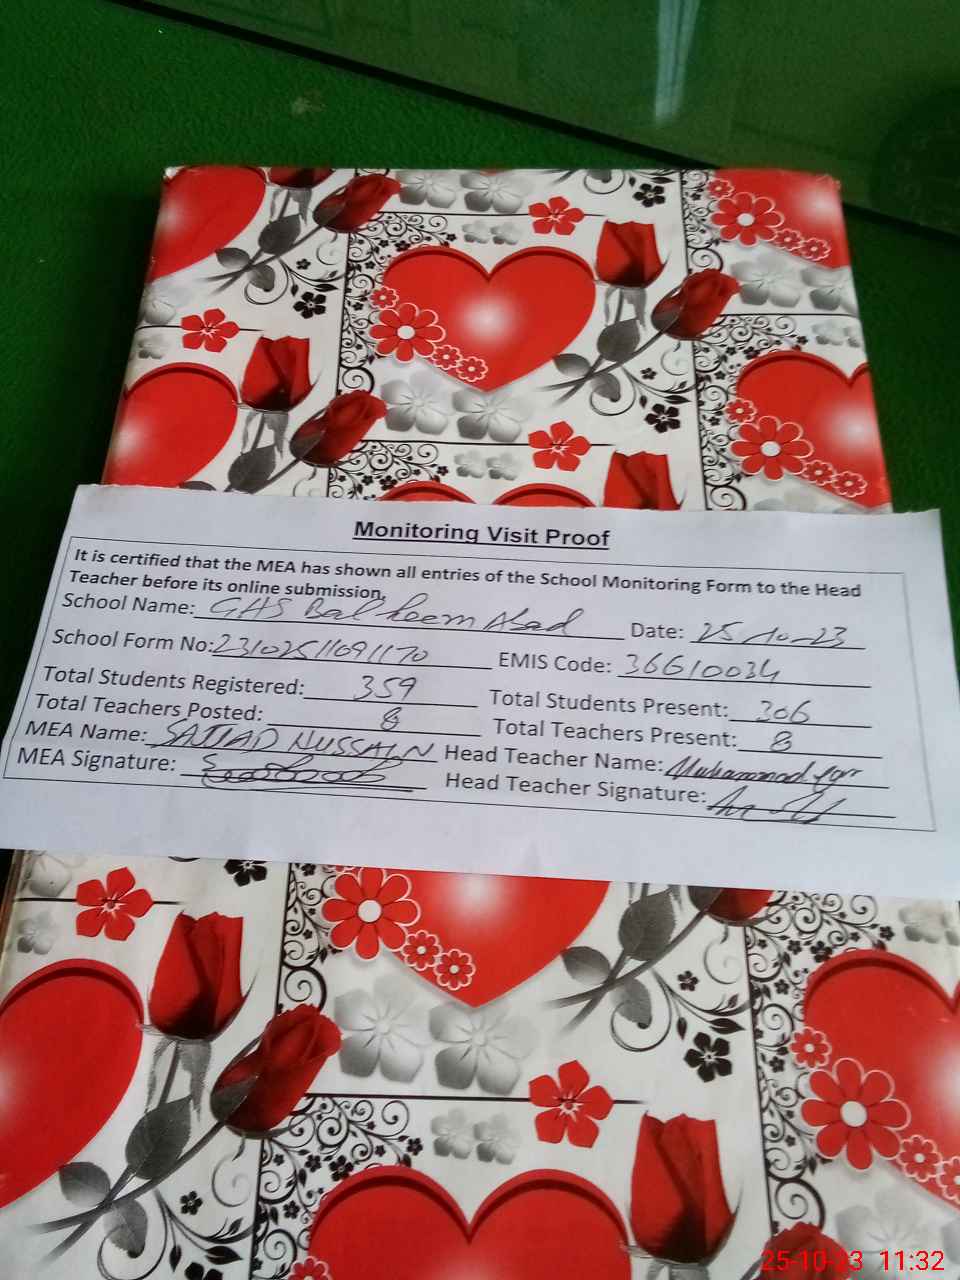 Monitoring Visit Proof
It is certified that the MEA has shown all entries of the School Monitoring Form to the Head
Teacher before its online submission.
School Name: GHS Date: 25-10-23
School Form No: 23102511091170 EMIS Code: 36610034
Total Students Registered: 359 Total Students Present: 306
Total Teachers Posted: 8 Total Teachers Present: 8
MEA Name: SAJJAD HUSSAIN Head Teacher Name: Muhammad
MEA Signature: Head Teacher Signature:
25-10-23 11:32